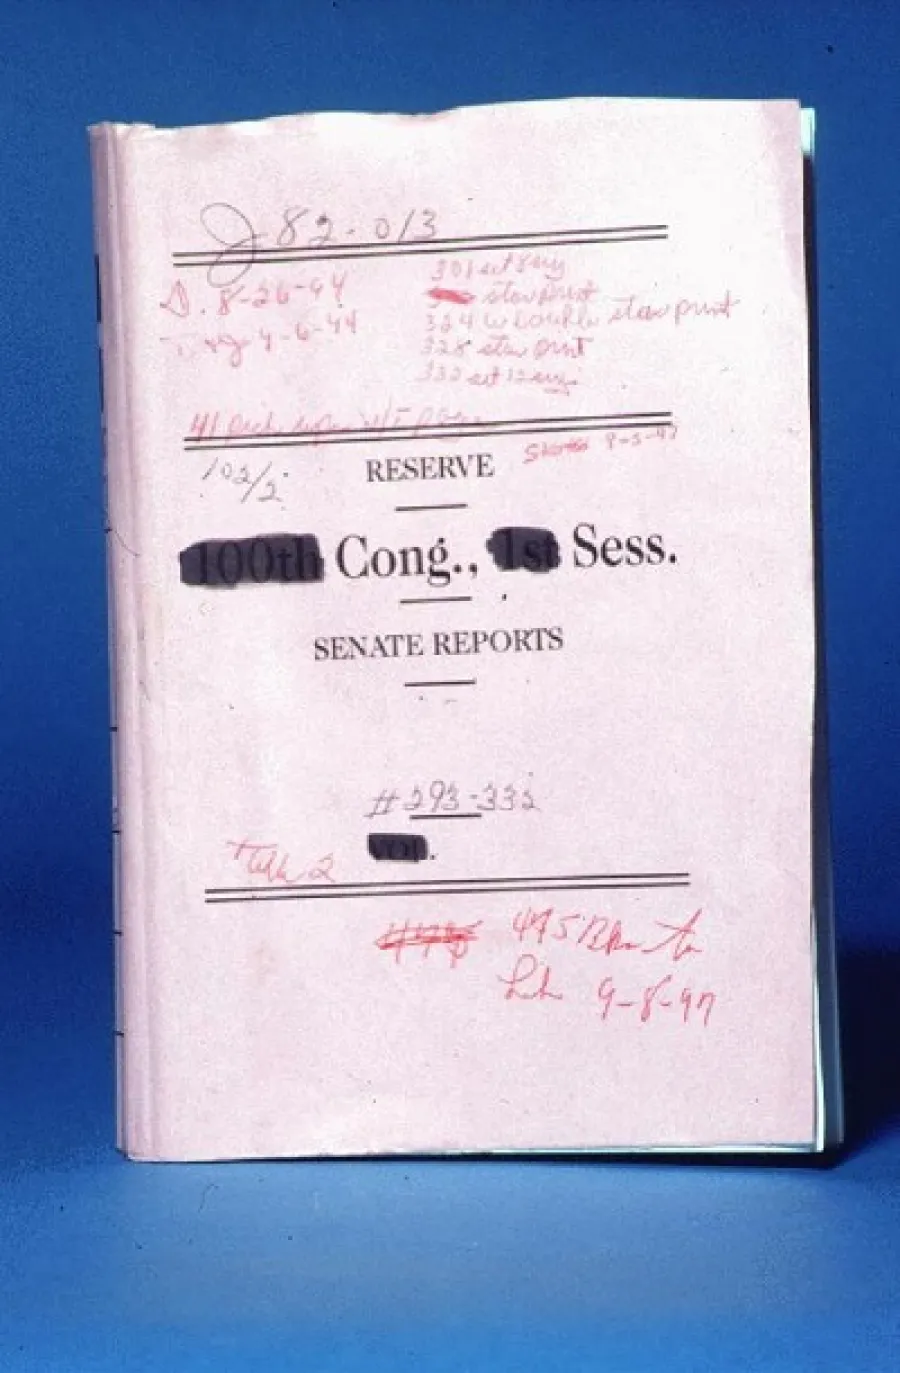 J-82-013
D. 8-26-94
301 set
star print
324 w double star print
328 star print
332 set 12
9-6-94
41
Started 9-5-97
102/2
RESERVE
100th Cong., 1st Sess.
SENATE REPORTS
#293-332
vol.
2
475
9-8-97